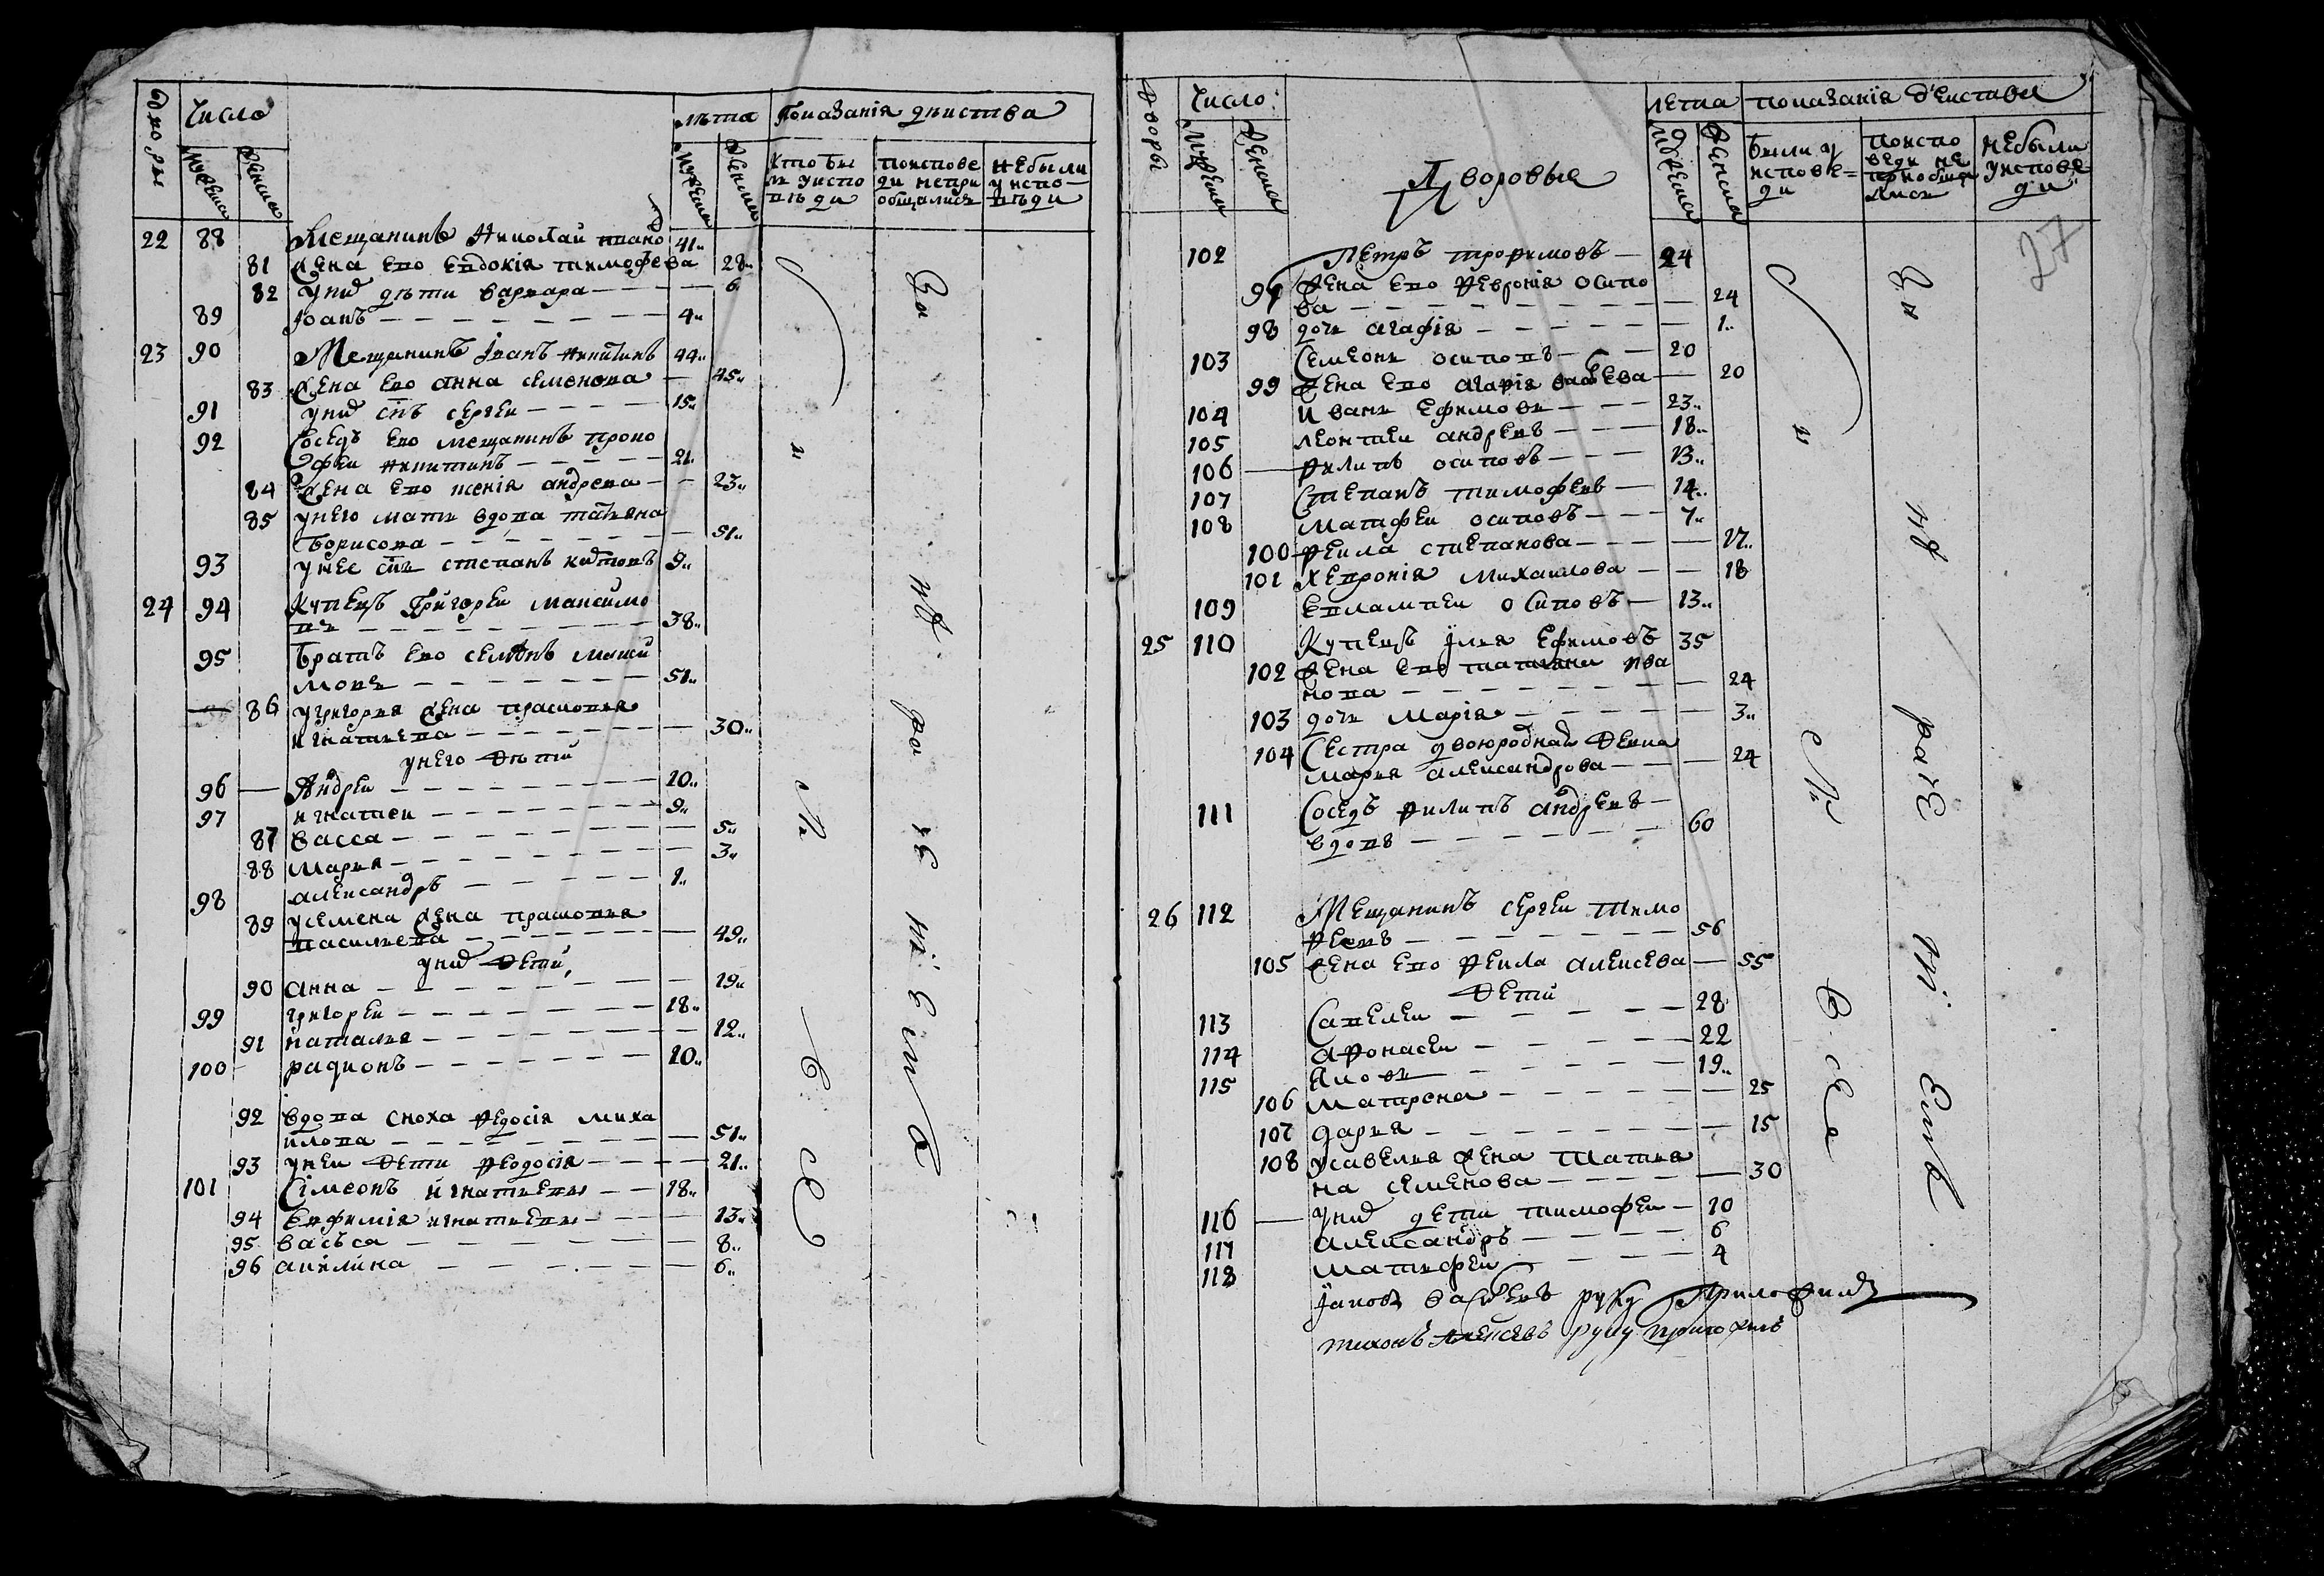 Дворы Число лѣта Показанія дѣиства
мужеска женска мужеска женска Кто бы
ли уиспо
вѣди поиспове
ди непри
общались небыли
уиспо
вѣди
22 88 Мещанинъ Николаи 41
81 жена его Евдокія тимофева 28
82 унихъ дѣти варвара 6
89 Іоанъ 4
23 90 Мещанинъ Іванъ никитинъ 44
83 жена его анна семенова 45
91 унихъ сынъ сергеи 15
92 Соседъ его мещанинъ проко
феи никитинъ 21
84 жена его ксенія андрева 23
85 унего мать вдова татьяна
борисова 51
93 унее сынъ степанъ 9
24 94 Купецъ Григореи Максимо
въ 38
95 Братъ его семенъ макси
мовъ 51
86 угригорья жена прасковья
игнатьева 30
унего дѣти
96 Андреи 10
97 игнатеи 9
87 васса 5
88 Марья 3
98 александръ 1
89 усемена жена прасковья
васильева 49
унихъ дети
90 анна 19
99 григореи 18
91 наталья 12
100 радионъ 10
92 вдова сноха федосія миха
илова 51
93 унеи дети феодосія 21
101 Сімеонъ игнатьевъ 18
94 Евфимія игнатьева 13
95 васъса 8
96 акилина 6
В с е М и
За не ра че ні е мъ
Дворы Число Дворовые лета показанія деистве
мужеска женска мужеска женска Были у
исповѣ=
ди поиспо
веди не
приобща
лись Небыли
уиспове
ди
27
102 Петръ трофимовъ 24
97 жена его Февронія Осипо
ва 24
98 дочь агафія 1
103 Семеонъ осиповъ 20
99 жена его агафія васиева 20
104 Иванъ Ефимовъ 23
105 леонтеи андреевъ 18
106 филипъ осиповъ 13
107 Степанъ тимофеевъ 14
108 матфеи осиповъ 7
100 фекла степанова 17
101 хевронія Михаилова 18
109 Евлампеи осиповъ 13
25 110 Купецъ Ілья Ефимовъ 35
102 жена его татьяна ива
нова 24
103 дочь Марія 3
104 Сестра двоюродная девка
марья александрова 24
111 Соседъ филипъ андреевъ
вдовъ 60
26 112 Мещанинъ сергеи тимо
феевъ 56
105 жена его фекла алексева 55
Дети
113 Савелеи 28
114 афонасеи 22
115 яковъ 19
106 матрена 25
107 дарья 15
108 усавелья жена татья
на семенова 30
116 унихъ дети тимофеи 10
117 александръ 6
118 матфеи 4
Іаковъ васиевъ руку Приложилъ
тихонъ алексевъ руку приложилъ
В с е М и
За не раче ні емъ